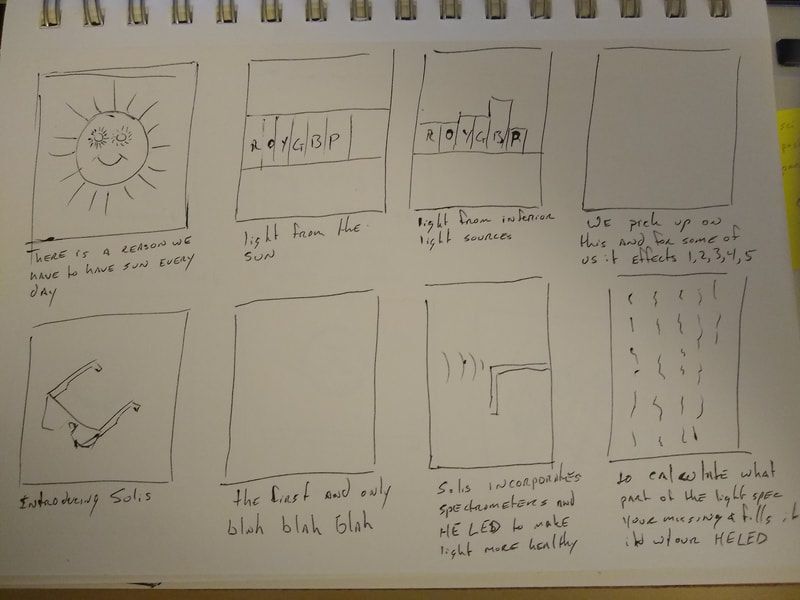 THERE IS A REASON WE
HAVE TO HAVE SUN EVERY
DAY
R O Y G B P
light from the
SUN
R O Y G B P
light from inferior
light sources
WE pick up on
this and for some of
us it effects 1,2,3,4,5
INTRODUCING Solis
the first and only
blah blah blah
Solis INCORPORATES
spectrometers and
HE LED to make
light more healthy
to calculate what
part of the light spec
your missing & fills it
in w/our HELED